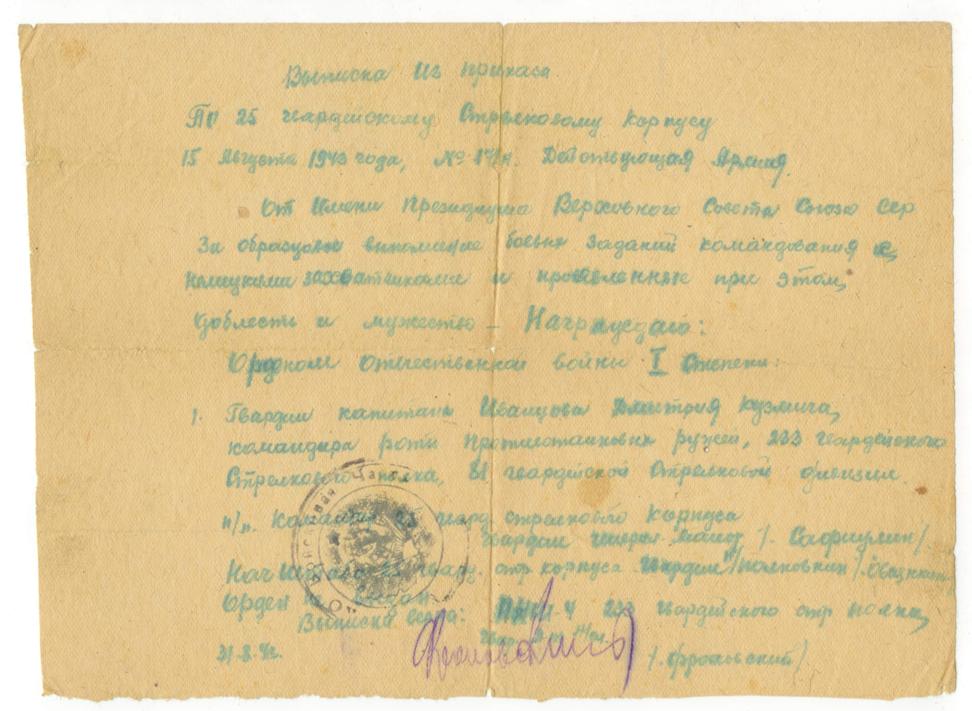 Выписка из приказа
По 25 гвардейскому Стрелковому Корпусу
15 Августа 1943 года, № Действующая Армия.
От имени Президиума Верховного Совета Союза ССР
За образцовое выполнение боевых заданий командования с
немецкими захватчиками и проявленные при этом,
доблесть и мужество – Награждаю:
Орденом Отечественной войны I степени:
1. Гвардии капитана Дмитрия Кузмича,
командира роты Противотанковых ружей, 233 гвардейского
Стрелкового полка, 81 гвардейской Стрелковой дивизии.
п/п. Команд гвард. стрелкового Корпуса
гвардии генерал майор /. Сафиулин/.
Нач Штаба гвард. стр корпуса гвардии полковник
Орден
Выписка верна: 233 гвардейского стр полка,
31.8.